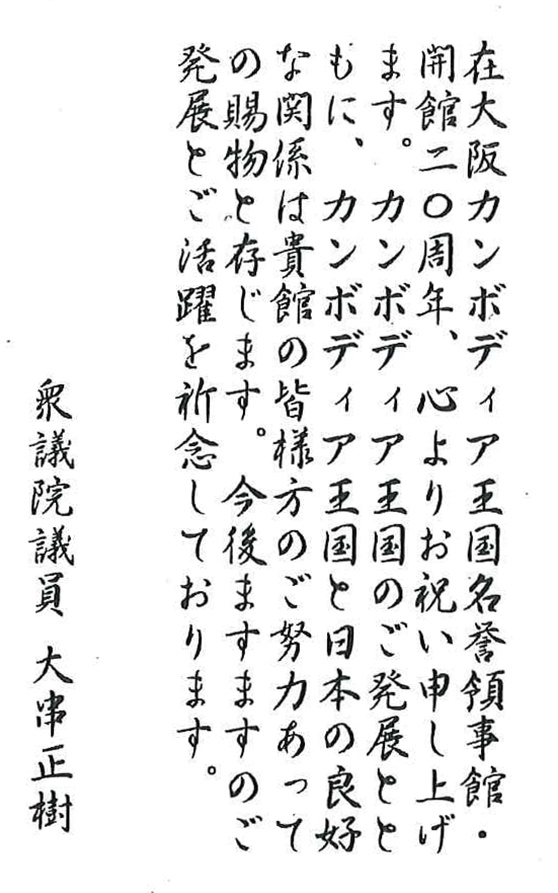 在大阪カンボディア王国名誉領事館・
開館二〇周年、心よりお祝い申し上げ
ます。カンボディア王国のご発展とと
もに、カンボディア王国と日本の良好
な関係は貴館の皆様方のご努力あって
の賜物と存じます。今後ますますのご
発展とご活躍を祈念しております。
衆議院議員 大串正樹